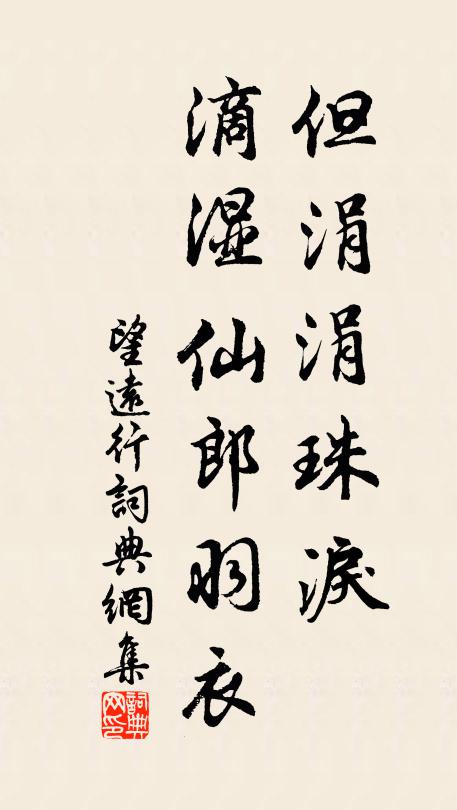 但涓涓珠淚
滴湿仙郎羽衣
望遠行詞典網集
詞典网印